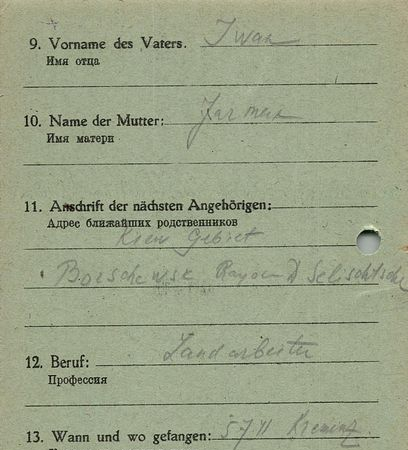 9. Vorname des Vaters. Iwan
Имя отца
10. Name der Mutter:
Имя матери
11. Anschrift der nächsten Angehörigen:
Адрес ближайших родственников
Kiew Gebiet
Borschewsk Rayoon D Selischtsche
12. Beruf: Landarbeiter
Профессия
13. Wann und wo gefangen: 5 7 41